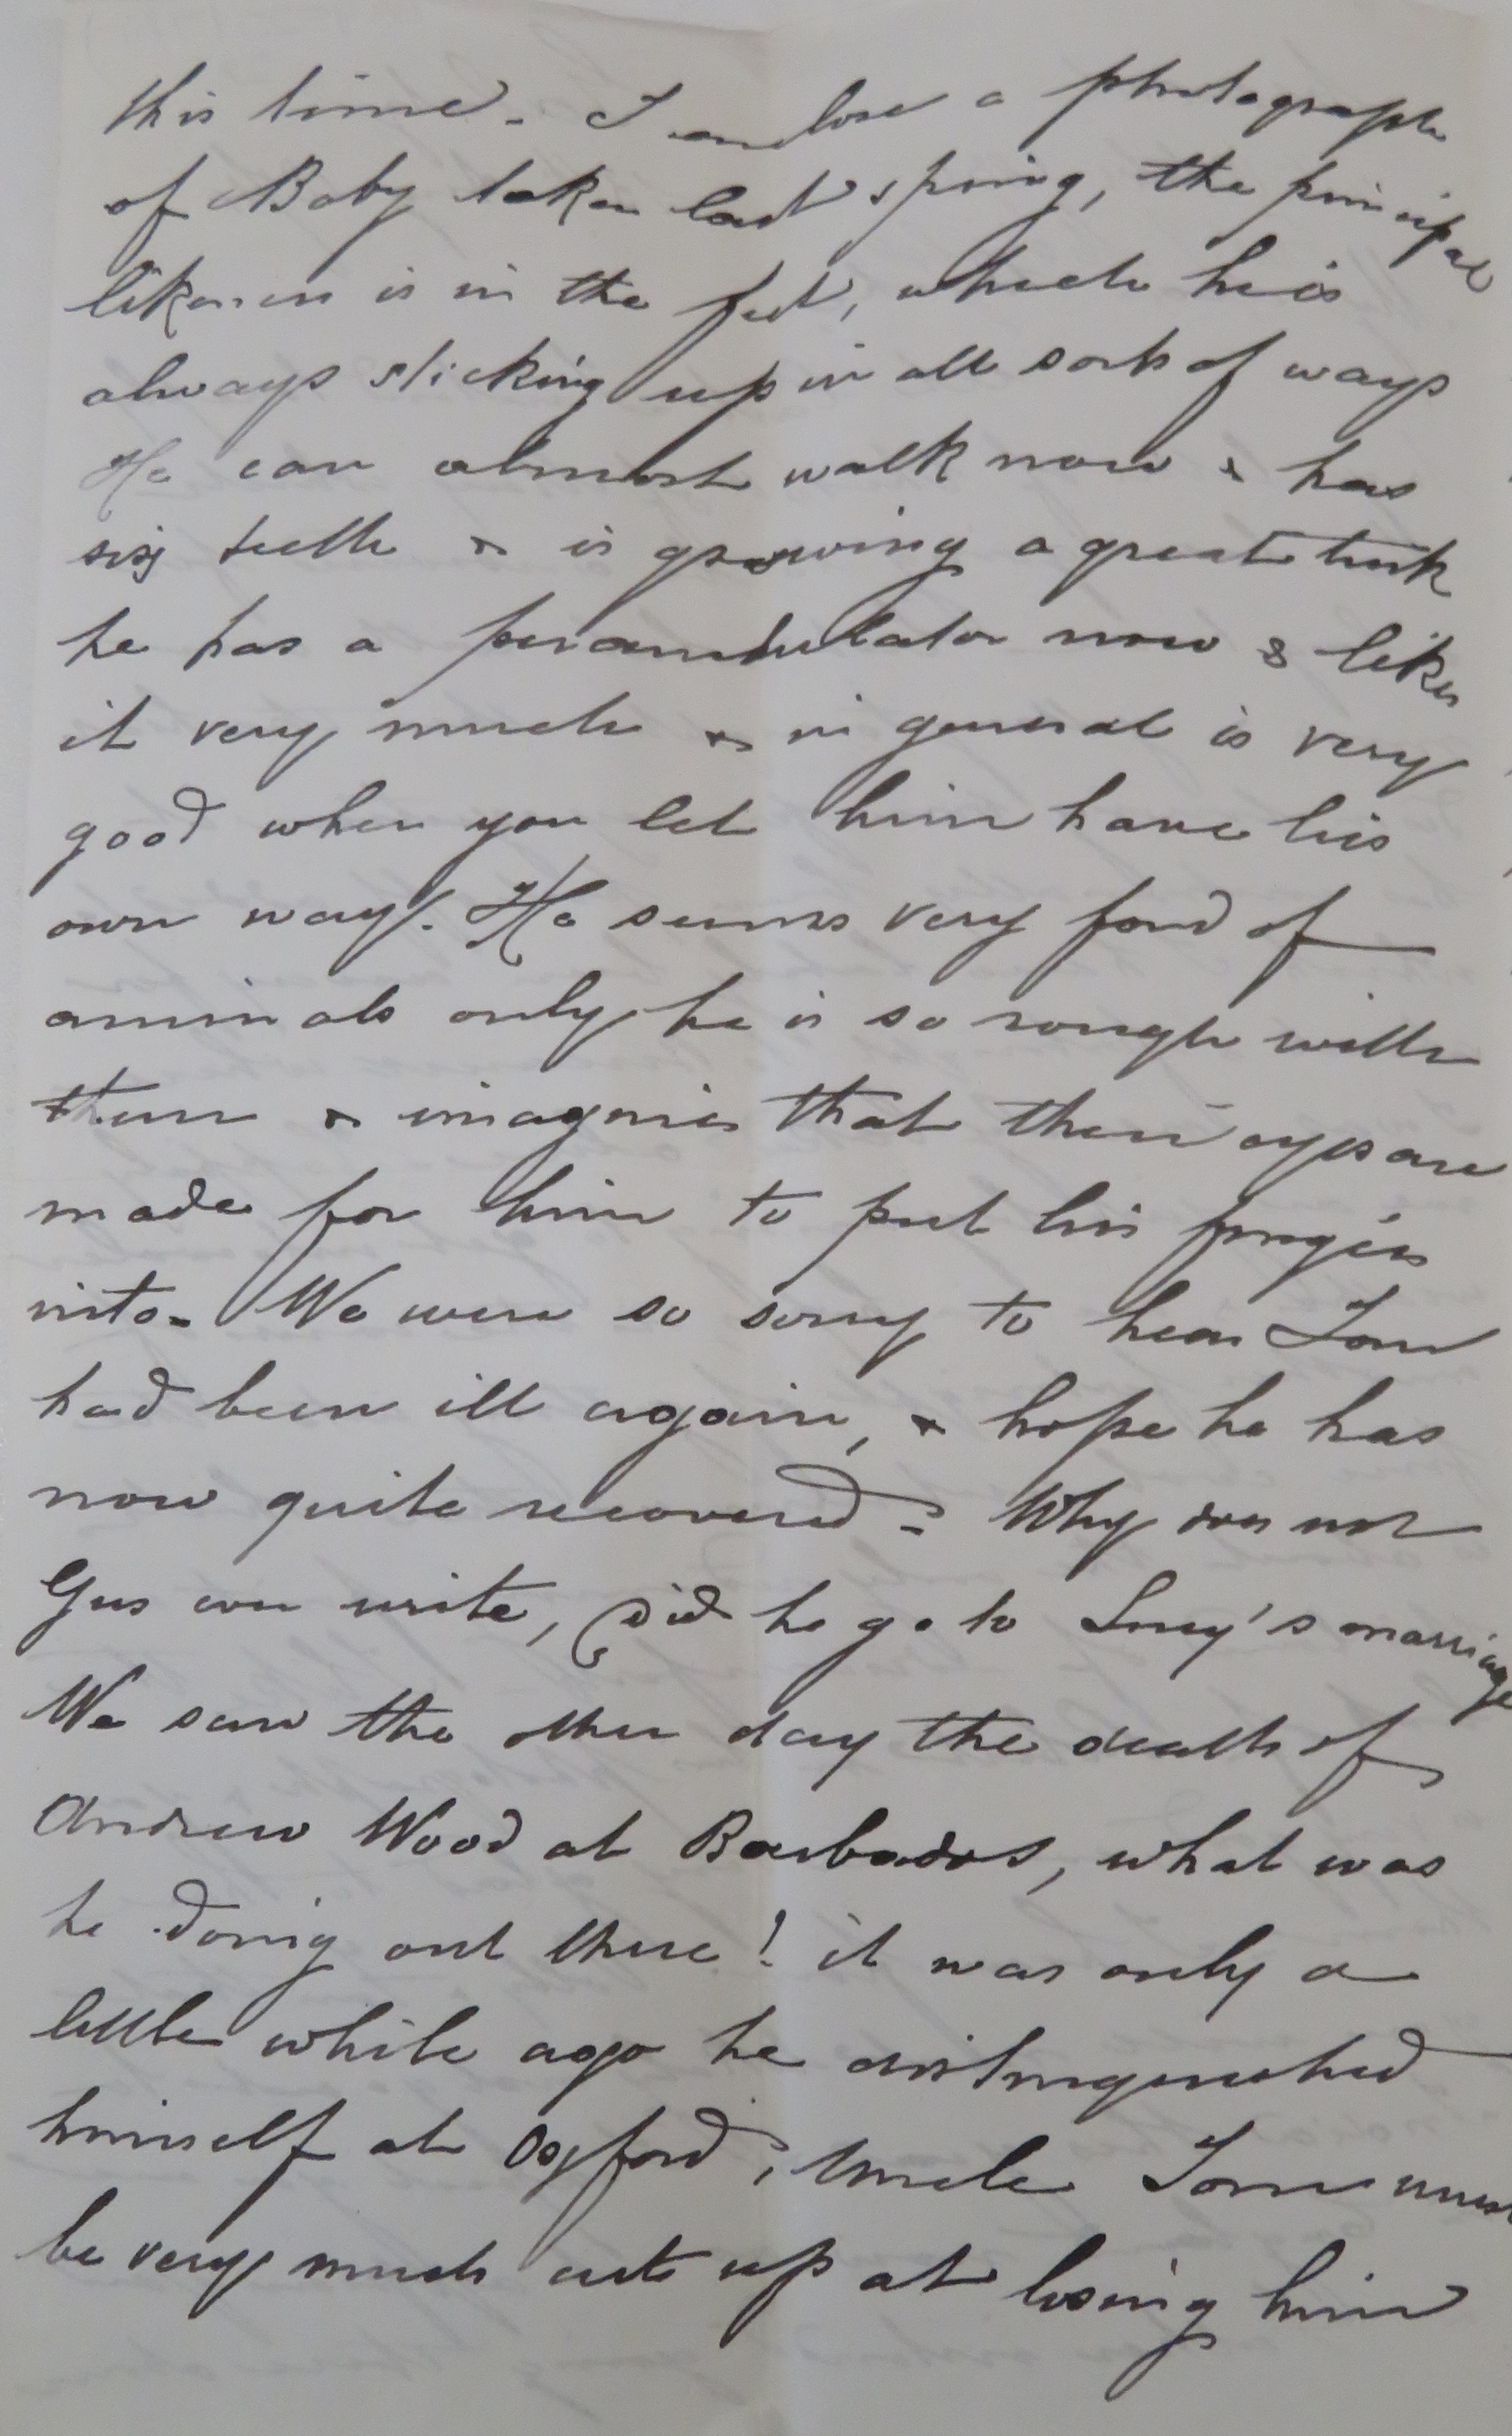 this time. I enclose a photograph
of Baby taken last spring, the principal
likeness is in the feet, which he is
always sticking up in all sorts of ways
He can almost walk now & has
six teeth & is growing a great Turk
he has a perambulator now & likes
it very much & in general is very
good when you let him have his
own way. He seems very fond of
animals only he is so rough with
them & imagines that their eyes are
made for him to put his fingers
into. We were so sorry to hear Tom
had been ill again, & hope he has
now quite recovered. Why does not
Gus ever write, did he go to Lucy's marriage
We saw the other day the death of
Andrew Wood at Barbados, what was
he doing out there! it was only a
little while ago he distinguished
himself at Oxford, Uncle Tom must
be very much cut up at losing him